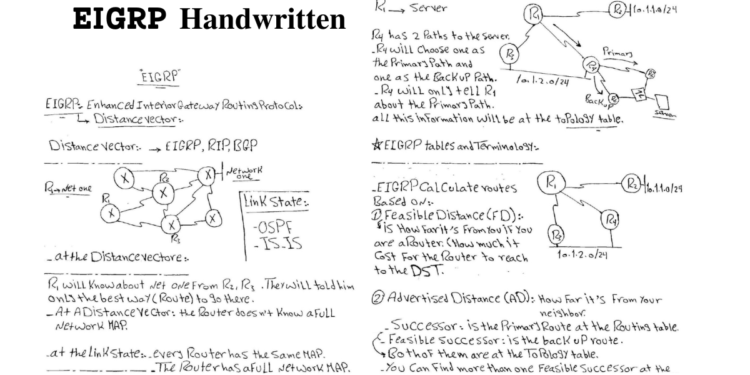 EIGRP Handwritten
"EIGRP"
EIGRP: Enhanced Interior Gateway Routing Protocol:
Distance vector:
Distance vector: → EIGRP, RIP, BGP
R1 → Net one
R1
R2
R3
Network one
X
X
X
X
X
X
Link State:
-OSPF
-IS.IS
- at the Distance vectore:
R1 will know about Net one From R2, R3 . They will told him
only the best way (Route) to go there.
- At A Distance Vector: the Router doesn't know a Full
Network MAP.
- at the link State: - every Router has the Same MAP.
- The Router has a Full Network MAP.
R1 → Server
R4 has 2 Paths to the server.
- R4 will choose one as
the Primary Path and
one as the Backup Path.
- R4 will only tell R1
about the Primary Path.
all this information will be at the toPology table.
R1
10.1.1.0/24
Primary
10.1.2.0/24
Backup
server
☆ EIGRP tables and Terminology:
- EIGRP Calculate routes
Based on:
① Feasible Distance (FD):
is How Far it's From you if you
are a Router. (How much it
Cost For the Router to reach
to the DST.
R1
10.1.1.0/24
R4
10.1.2.0/24
② Advertised Distance (AD): How Far it's From your
neighbor.
- Successor: is the Primary Route at the Routing table.
- Feasible Successor: is the back up route.
Both of them are at the ToPology table.
- You Can Find more than one Feasible Successor at the